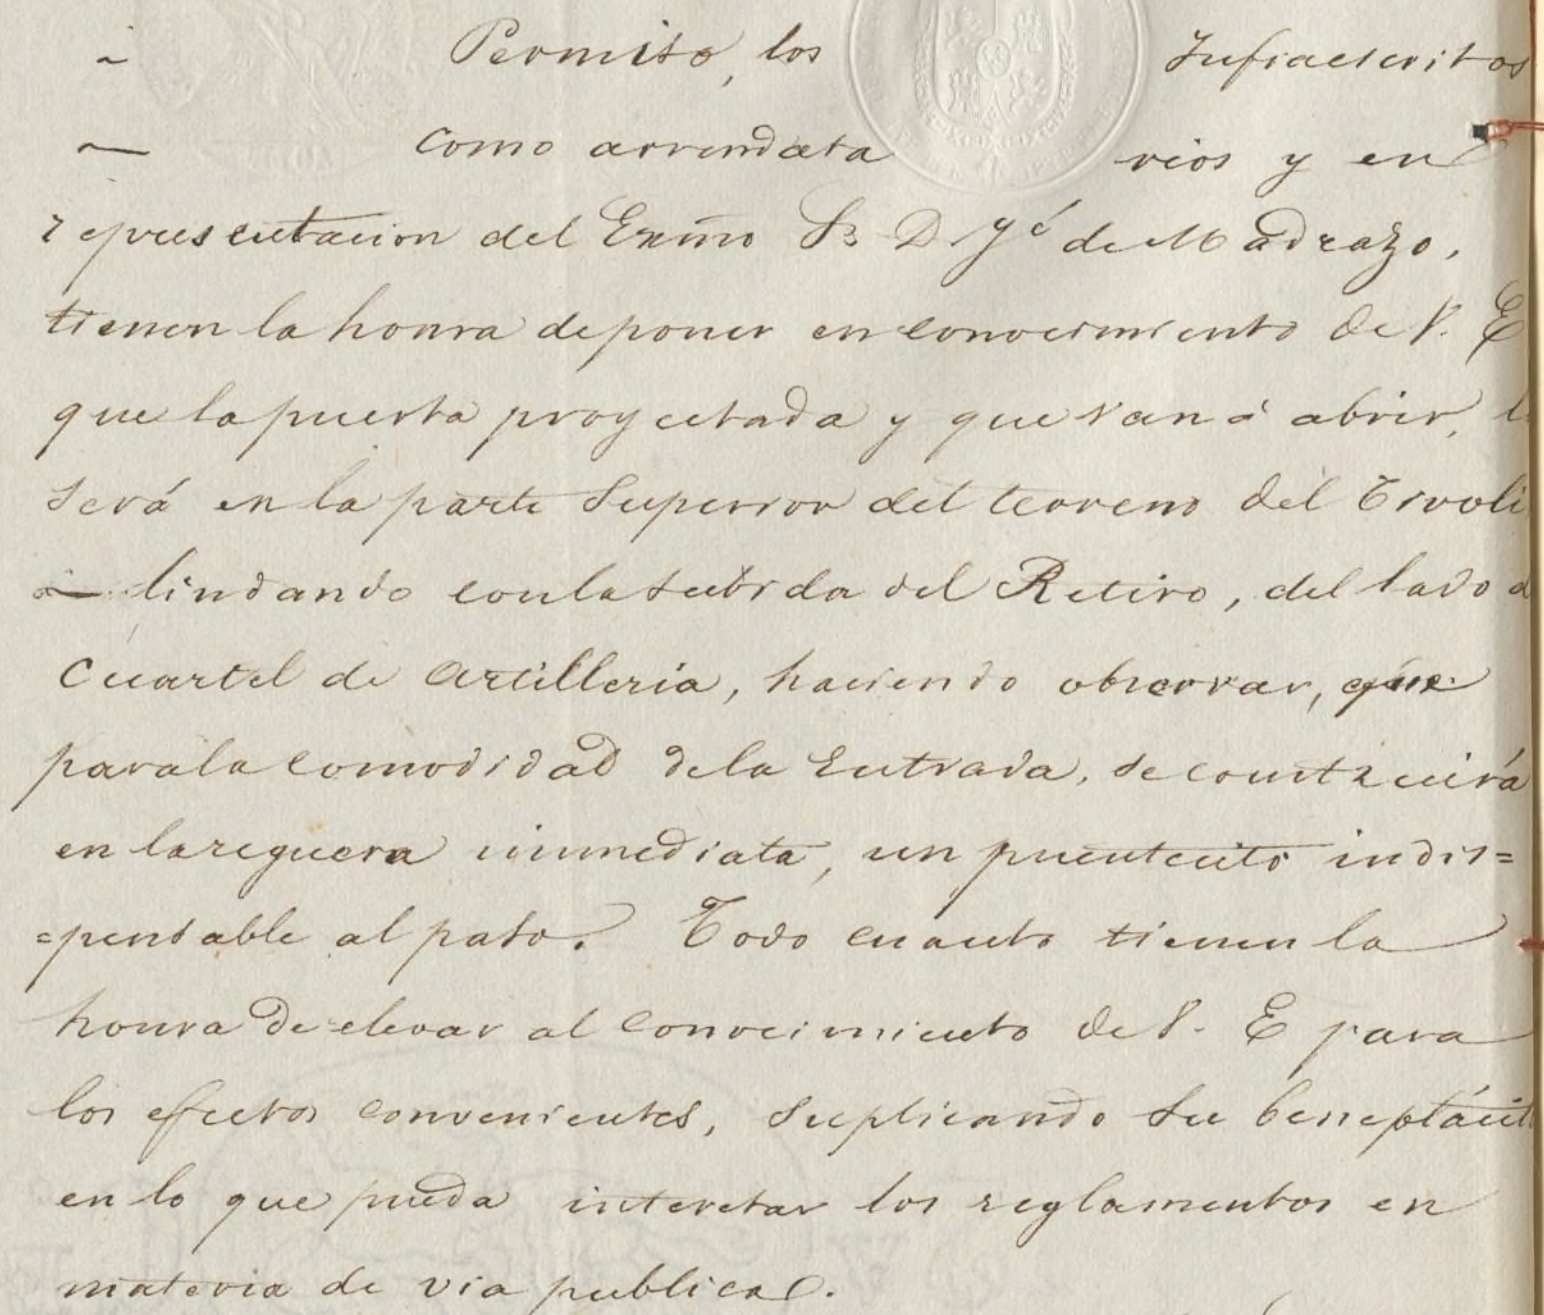 Permiso, los Infraescritos
como arrendatarios y en
representacion del Exmo Sr D Jé de Madrazo,
tienen la honra de poner en conocimiento de V. E
que la puerta proyectada y que van á abrir,
será en la parte Superior del terreno del Tivoli
lindando con la subida del Retiro, del lado
Cuartel de Artilleria, haciendo observar, que
para la comodidad de la Entrada, se construirá
en la reguera inmediata, un puentecito indis=
=pensable al paso. Todo cuanto tienen la
honra de elevar al conocimiento de V. E para
los efectos convenientes, suplicando su beneplácit
en lo que pueda interesar los reglamentos en
materia de via publica.